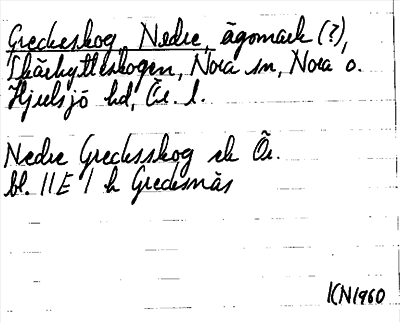 Greckeskog, Nedre, ägomark (?),
Skärhytteskogen, Nora sn, Nora o.
Hjulsjö hd, Ör. l.
Nedre Grecksskog ek Ör.
bl. 11E 1 h Grecksnäs
KN1960